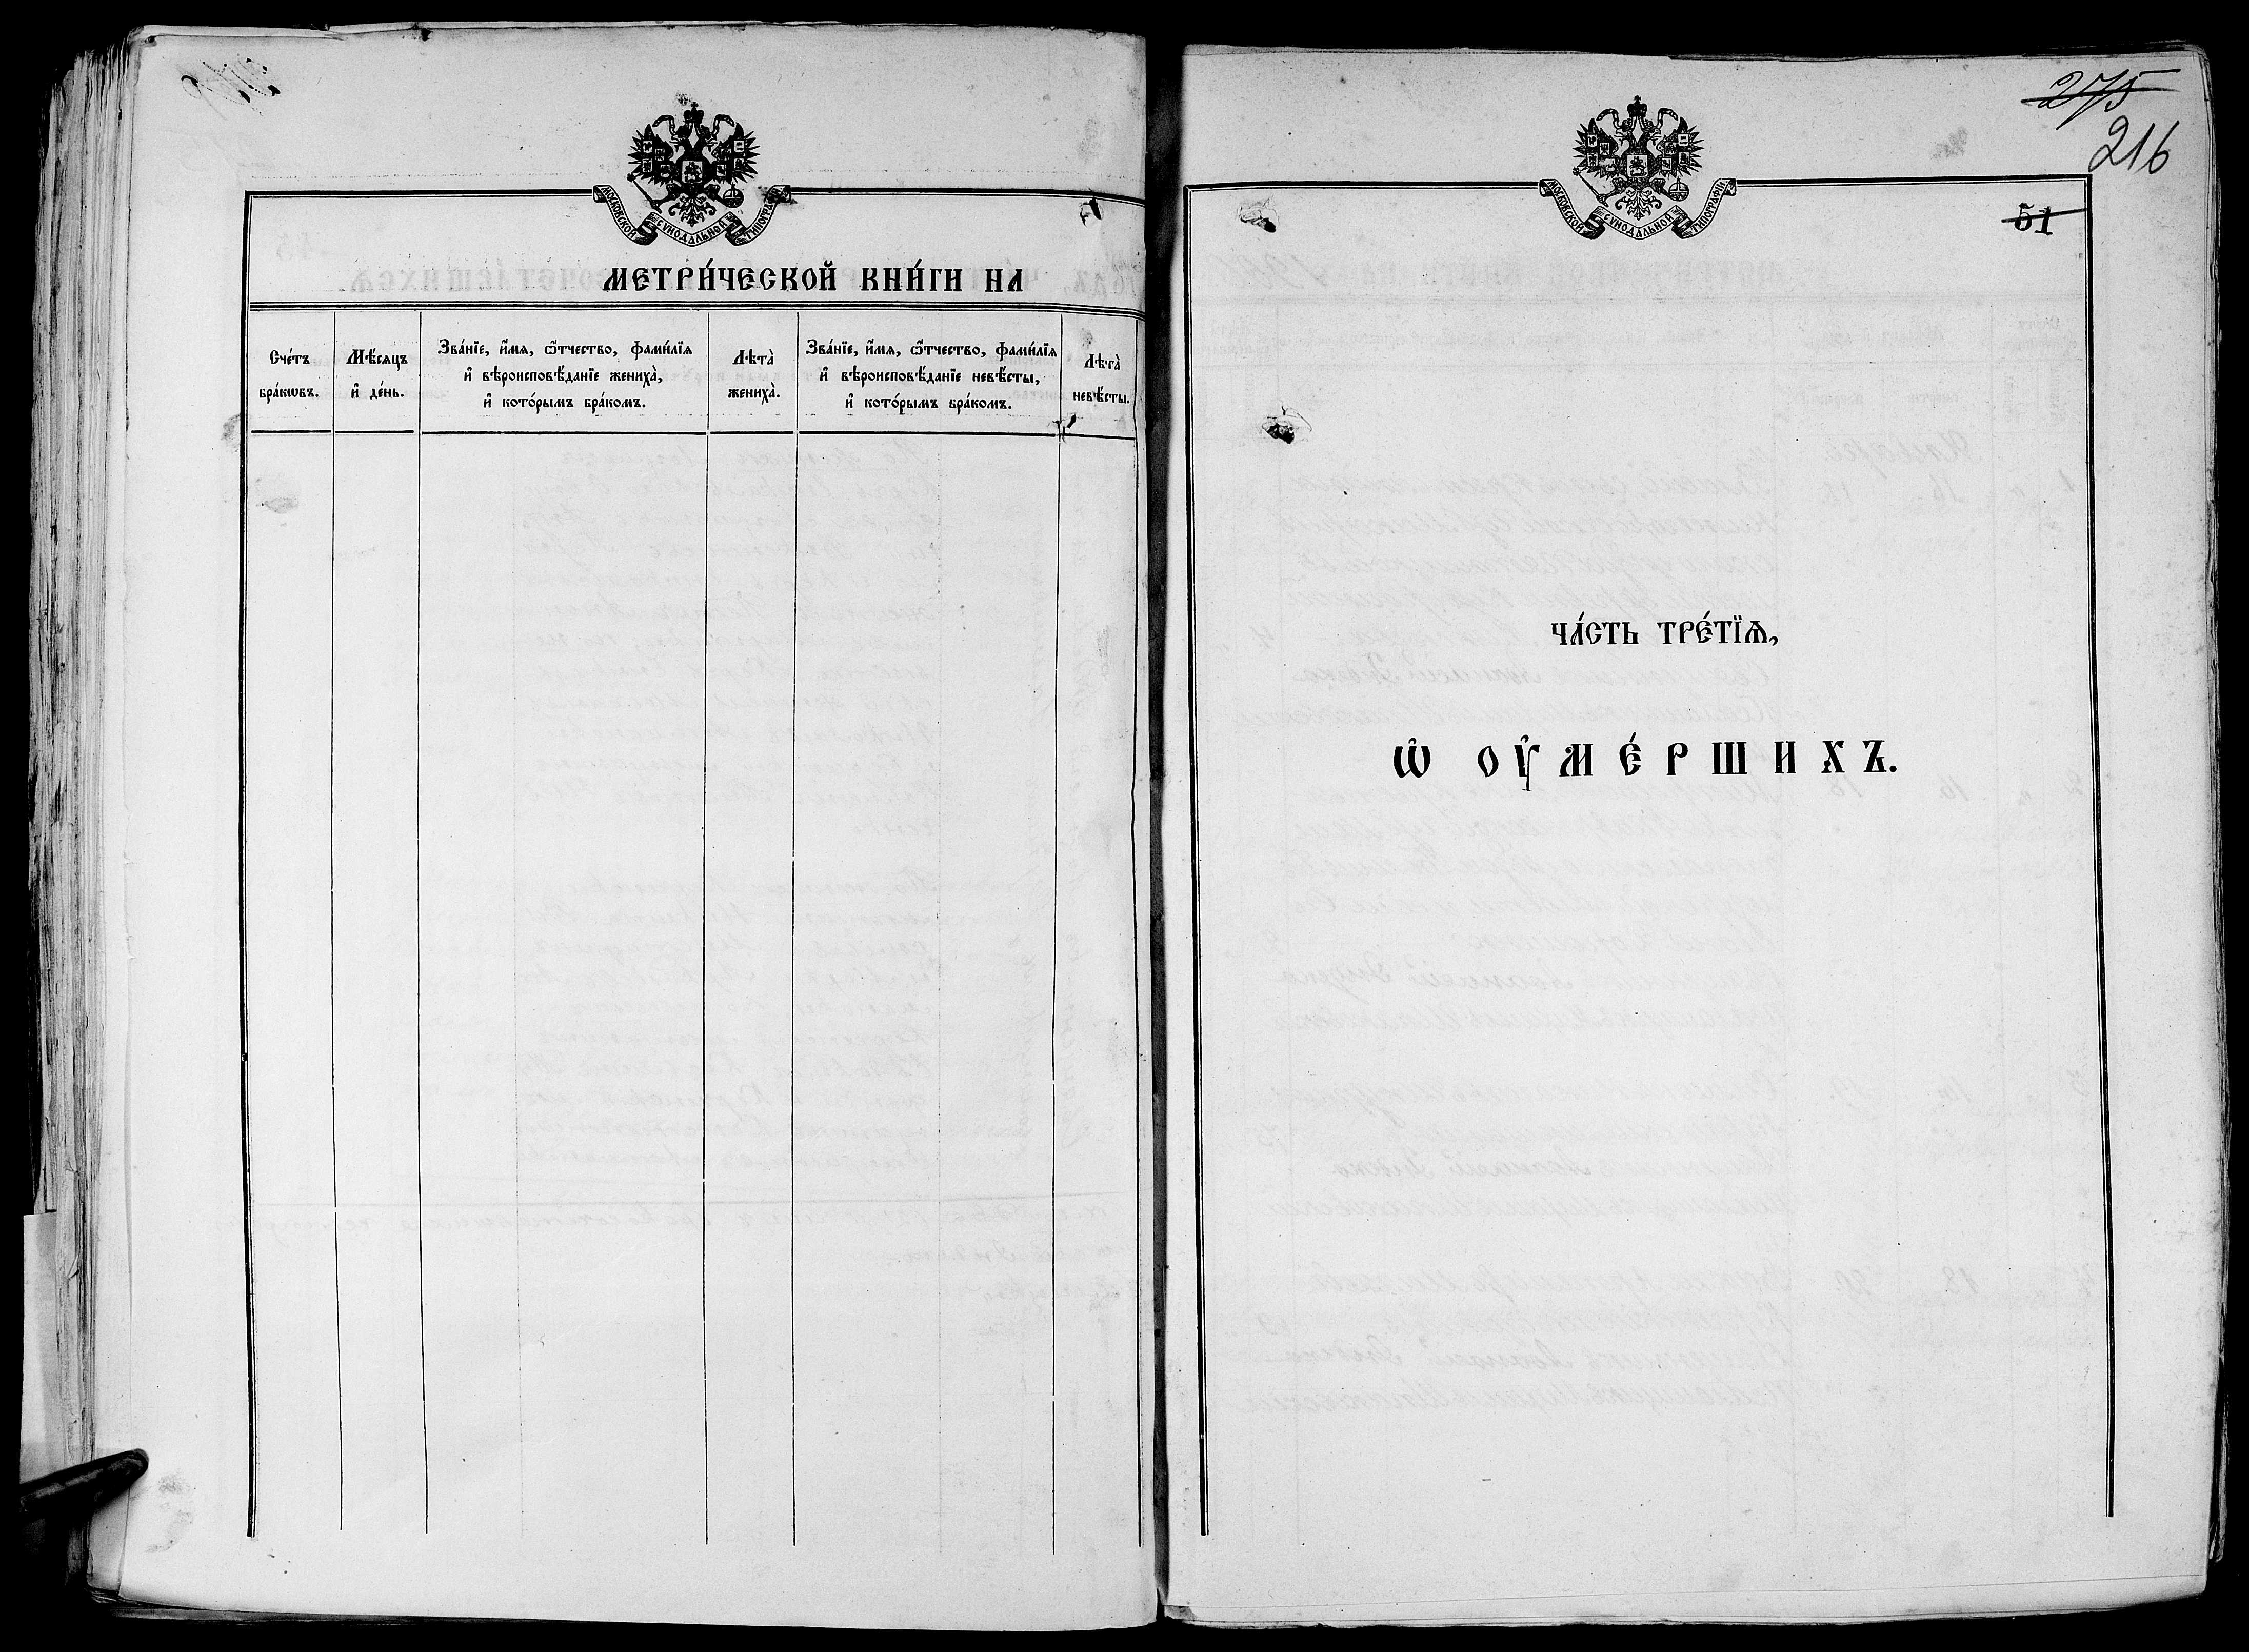 МОСКОВСКОЙ СѴНОДАЛЬНОЙ ТИПОГРАФІИ
МЕТРИ́ЧЕСКОЙ КНИ́ГИ НА
Сче́тъ
бра́кѡвъ.
Мѣ́сяцъ
и҆ де́нь.
Зва́нїе, и҆́мя, ѻ҆́тчество, фами́лїя
и҆ вѣроисповѣ́данїе жениха̀,
и҆ кото́рымъ бра́комъ.
Лѣта̀
жениха̀.
Зва́нїе, и҆́мя, ѻ҆́тчество, фами́лїя
и҆ вѣроисповѣ́данїе невѣ́сты,
и҆ кото́рымъ бра́комъ.
Лѣта̀
невѣ́сты.
275
216
МОСКОВСКОЙ СѴНОДАЛЬНОЙ ТИПОГРАФІИ
51
ЧА́СТЬ ТРЕ́ТЇѦ,
Ѡ҆ ОУ҆МЕ́РШИХЪ.